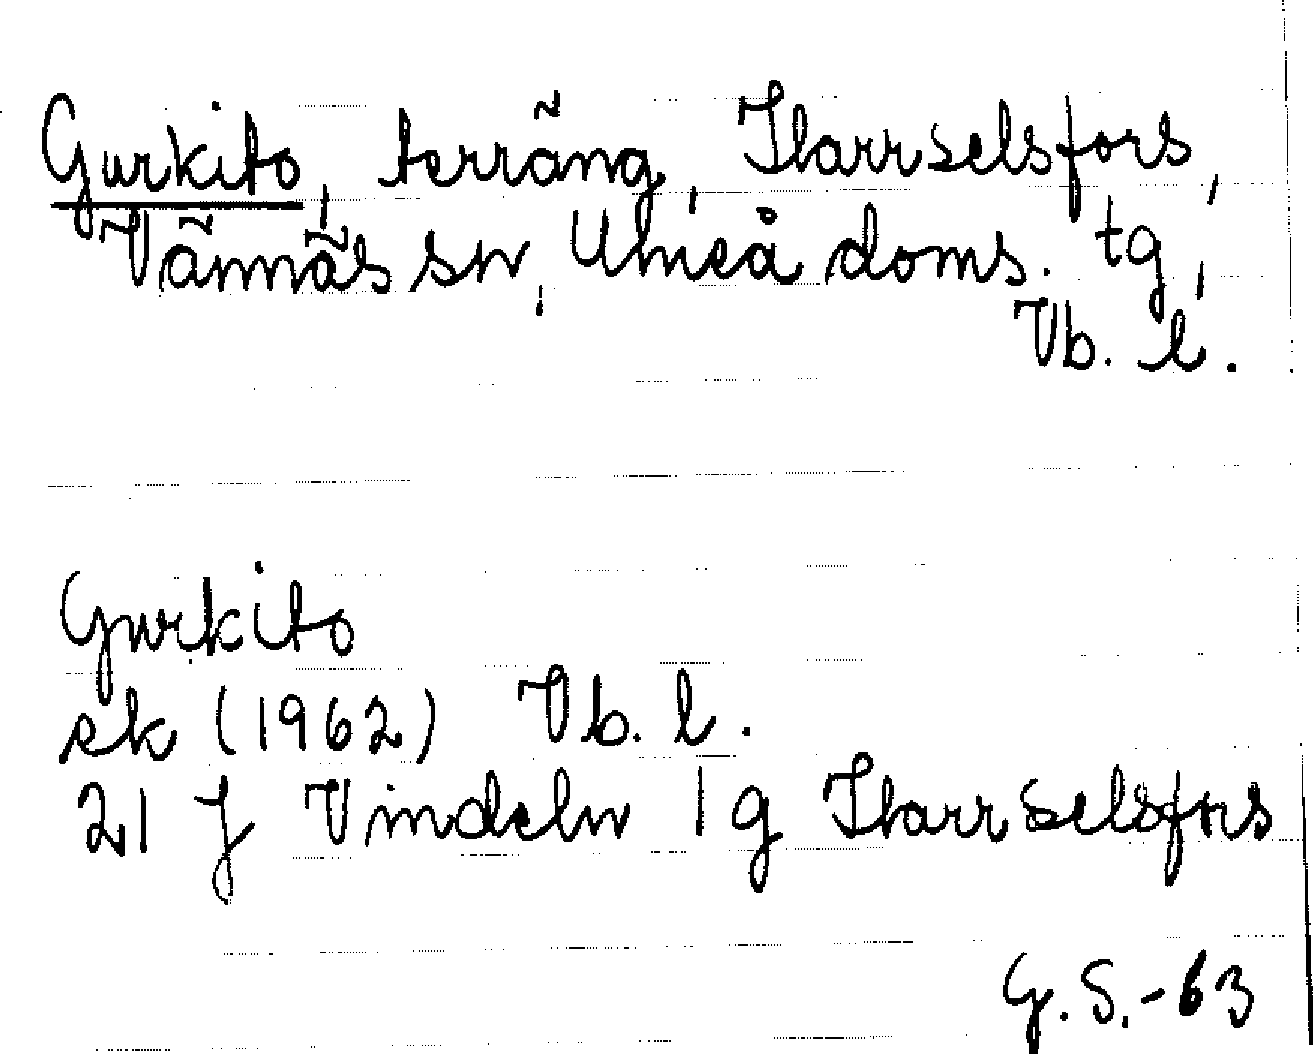 Gurkito, terräng, Harrselsfors,
Vännäs sn, Umeå doms. tg,
Vb. l.
Gurkito
ek (1962) Vb. l.
21 J Vindeln 1 g Harrselsfors
G. S. -63